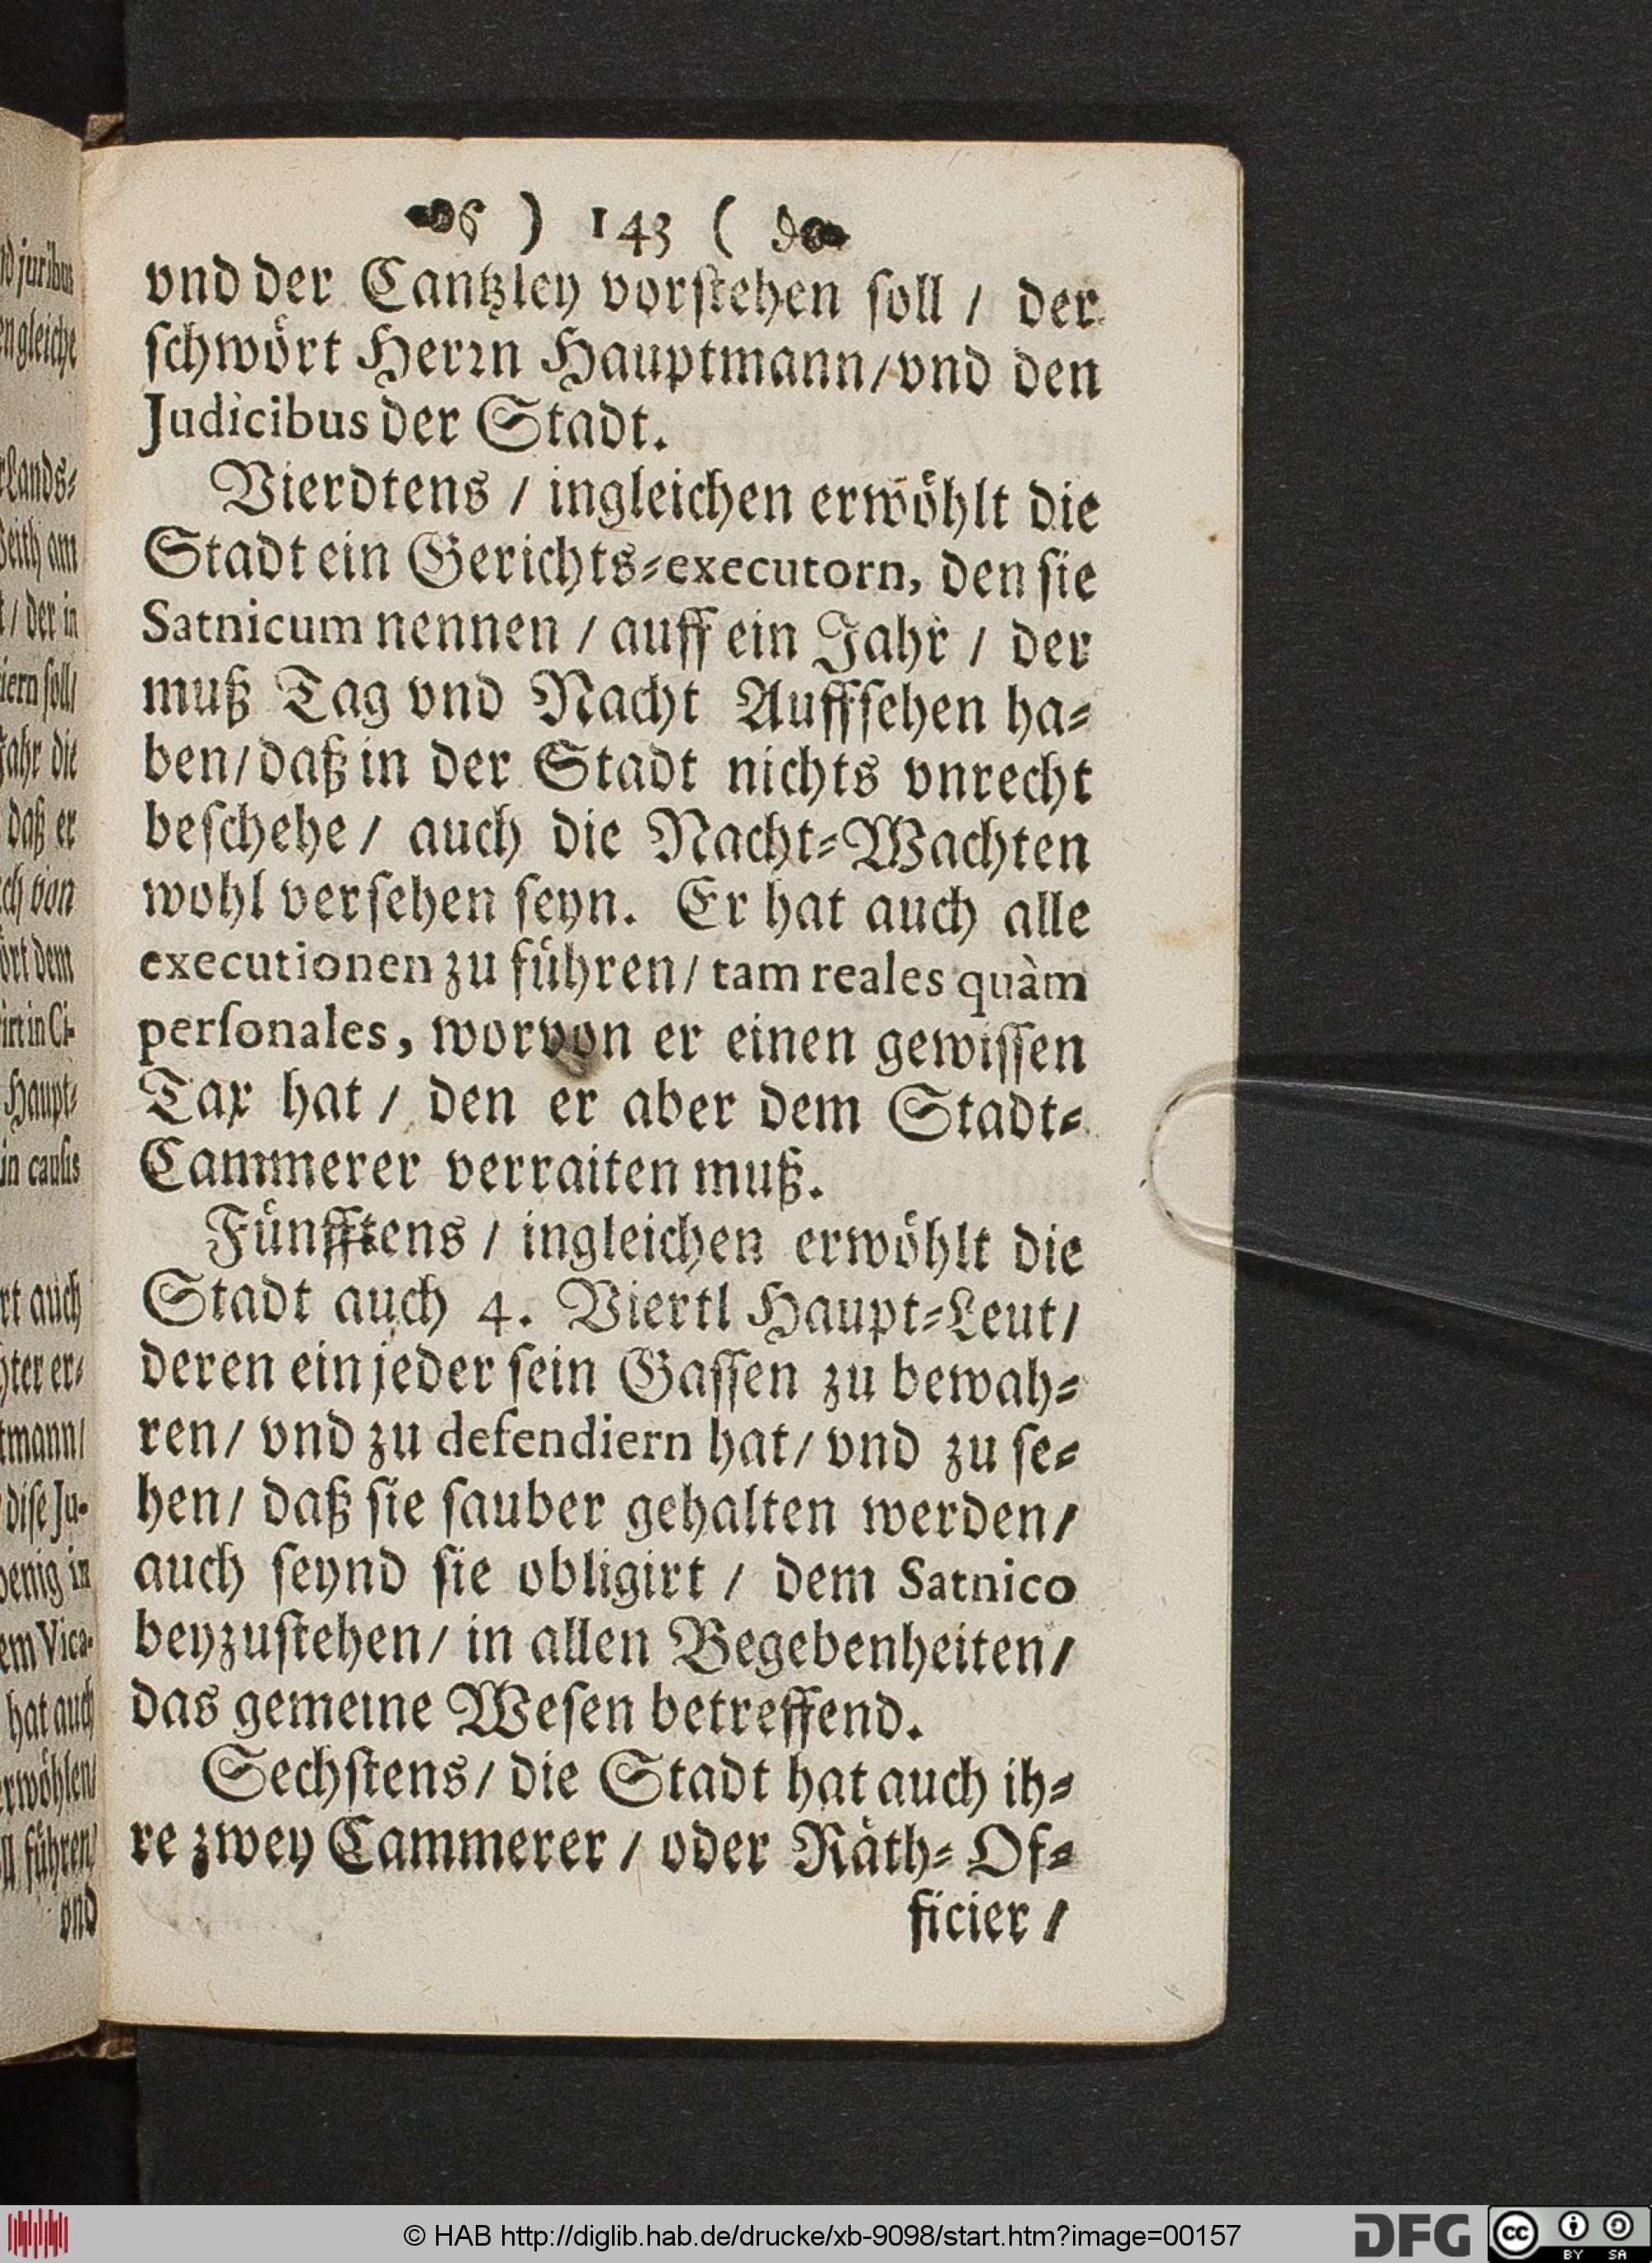 ) 143 (
vnd der Cantzley vorſtehen ſoll / der
ſchwoͤrt Herꝛn Hauptmann / vnd den
Judicibus der Stadt.
Vierdtens / ingleichen erwoͤhlt die
Stadt ein Gerichts-executorn, den ſie
Satnicum nennen / auff ein Jahr / der
muß Tag vnd Nacht Auffſehen ha-
ben / daß in der Stadt nichts vnrecht
beſchehe / auch die Nacht-Wachten
wohl verſehen ſeyn. Er hat auch alle
executionen zu fuͤhren / tam reales quàm
perſonales, worvon er einen gewiſſen
Tax hat / den er aber dem Stadt-
Cammerer verraiten muß.
Fuͤnfftens / ingleichen erwoͤhlt die
Stadt auch 4. Viertl Haupt-Leut /
deren ein jeder ſein Gaſſen zu bewah-
ren / vnd zu defendiern hat / vnd zu ſe-
hen / daß ſie ſauber gehalten werden /
auch ſeynd ſie obligirt / dem Satnico
beyzuſtehen / in allen Begebenheiten /
das gemeine Weſen betreffend.
Sechſtens / die Stadt hat auch ih-
re zwey Cammerer / oder Raͤth-Of-
ficier /
gleiche
Lands-
am
/ der in
ſoll /
die
daß er
von
dem
in Ci-
Haupt-
in cauſis
auch
er-
diſe Ju-
in
Vica-
hat auch
erwoͤhlen /
fuͤhren /
vnd
© HAB http://diglib.hab.de/drucke/xb-9098/start.htm?image=00157
DFG
cc
BY SA